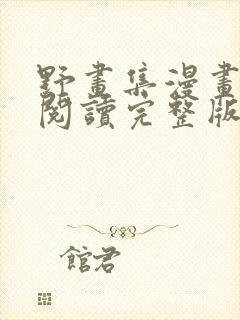 野畫集漫畫
閱讀完整版
館君